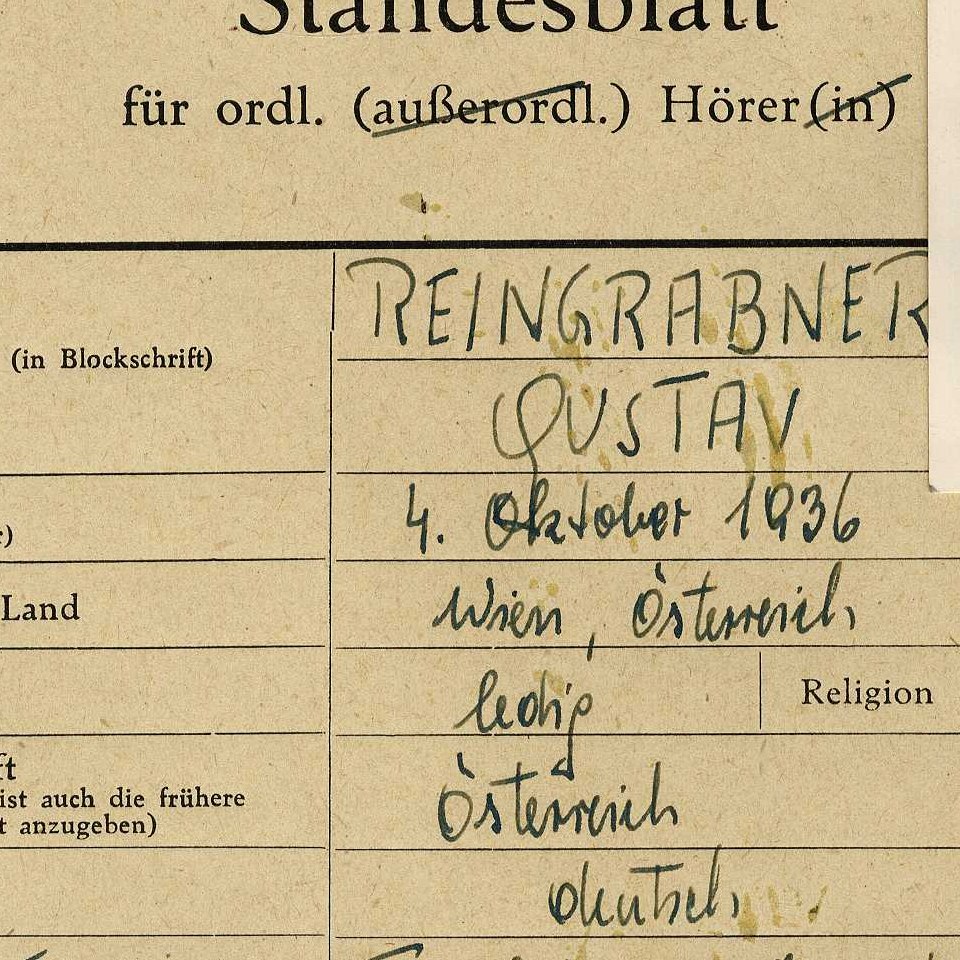 Standesblatt
für ordl. (außerordl.) Hörer(in)
REINGRABNER
(in Blockschrift)
GUSTAV
4. Oktober 1936
Land
Wien, Österreich
ledig
Religion
Österreich
ist auch die frühere
anzugeben)
deutsch